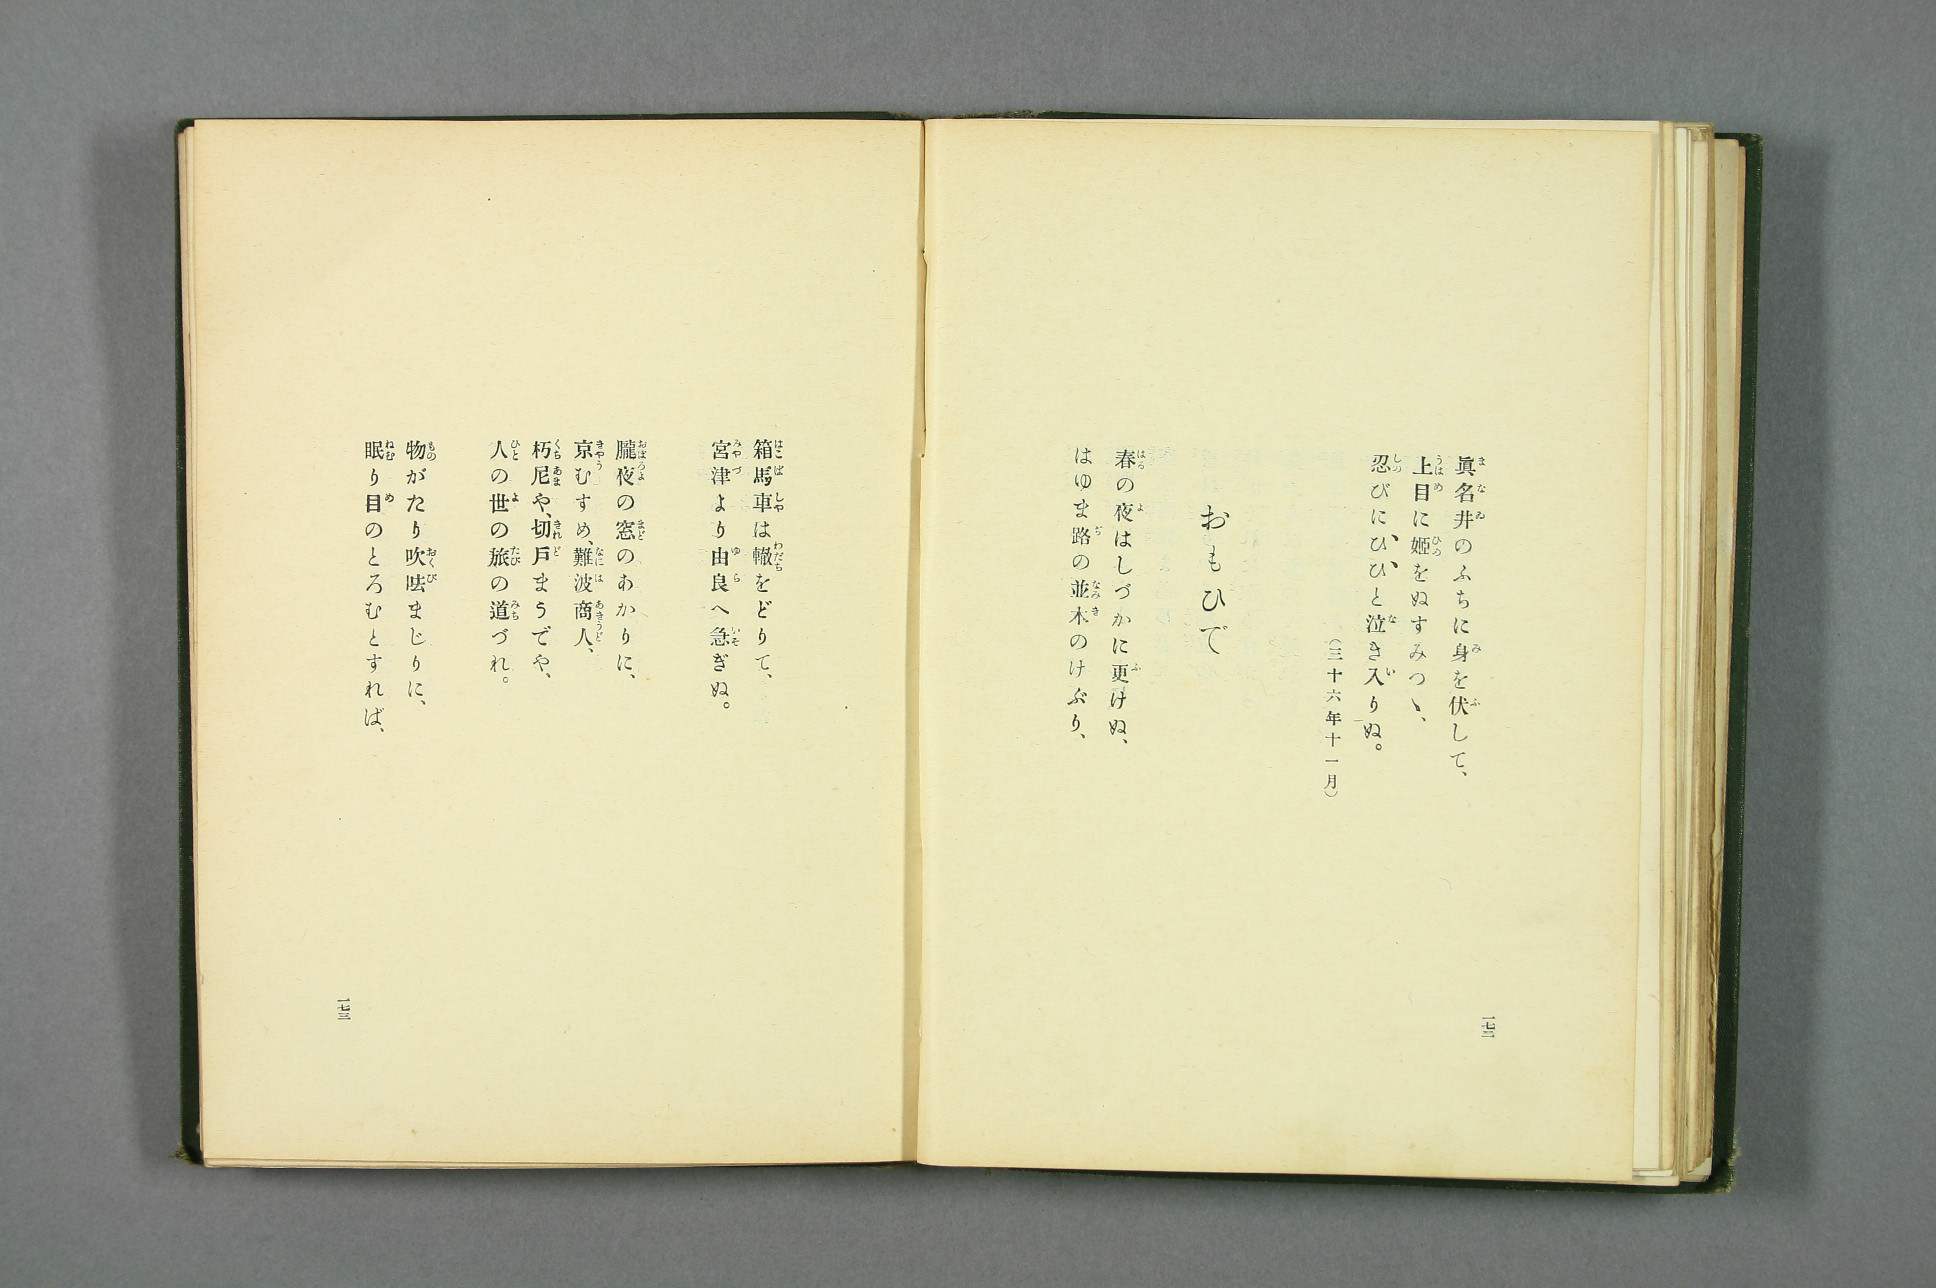 眞名井のふちに身を伏して、
上目に姬をぬすみつゝ、
忍びにひゝひゝと泣き入りぬ。
(三十六年十一月)
おもひで
春の夜はしづかに更けぬ、
はゆま路の並木のけぶり、
一七二
箱馬車は轍をどりて、
宮津より由良へ急ぎぬ。
朧夜の窓のあかりに、
京むすめ、難波商人、
朽尼や、切戸まうでや、
人の世の旅の道づれ。
物がたり吹呿まじりに、
眠り目のとろむとすれば、
一七三